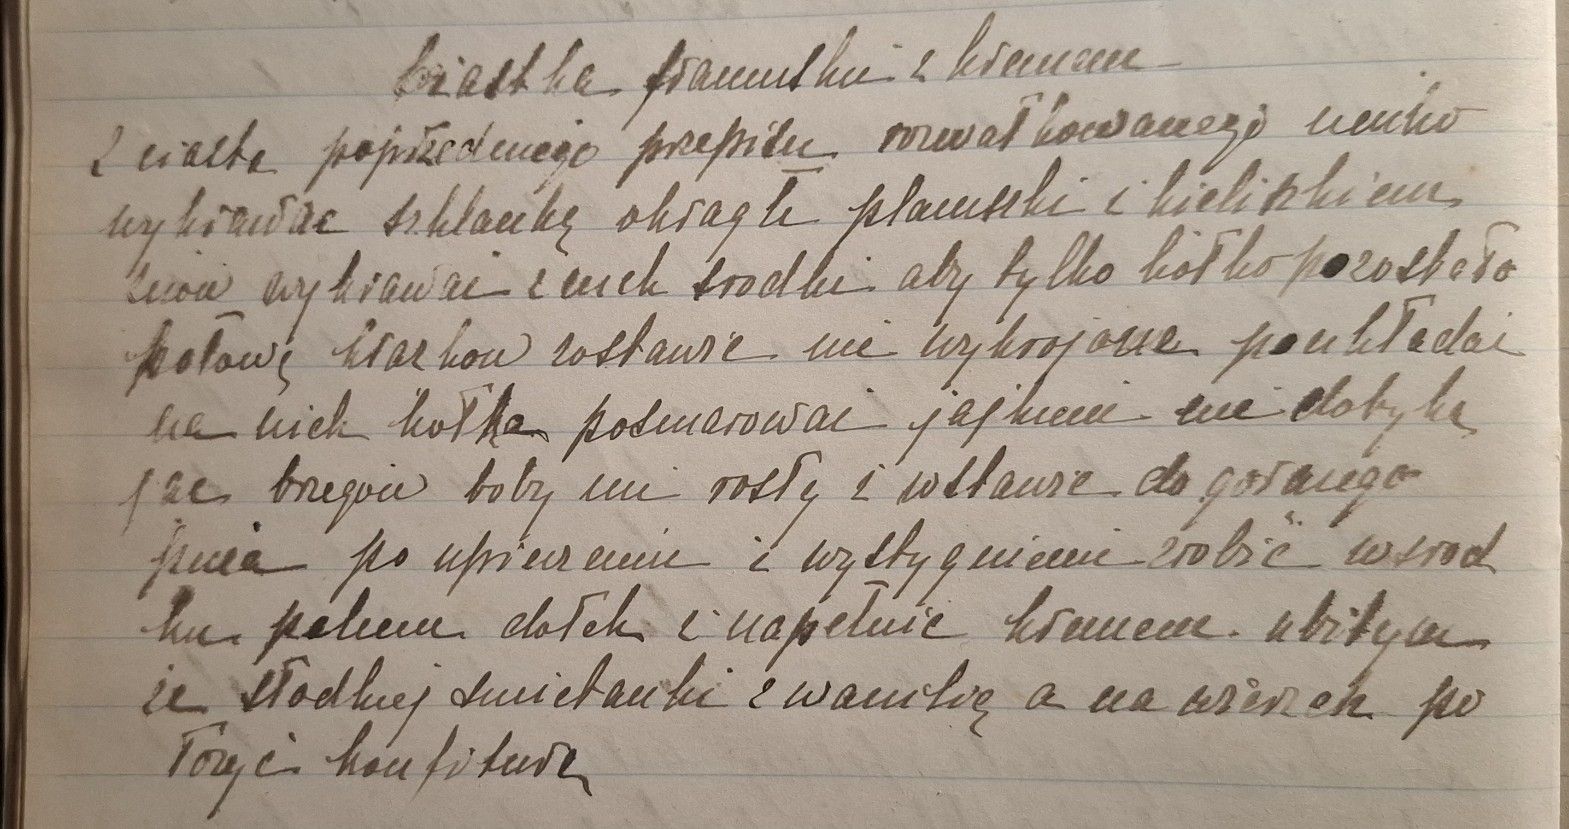 Ciastka francuskie z kremem
Z ciasta poprzedniego przepisu rozwałkowanego cienko
wykrawać szklanką okrągłe placuszki i kieliszkiem
znów wykrawać z nich środki aby tylko kółko pozostało
połowę krążków zostawić nie wykrojone poukładać
na nich kółka posmarować jajkiem nie dotyka
jąc brzegów boby nie rosły i wstawić do gorącego
pieca po upieczeniu i wystygnięciu zrobić w środ
ku palcem dołek i napełnić kremem ubitym
ze słodkiej śmietanki z wanilią a na wierzch po
łożyć konfiturę